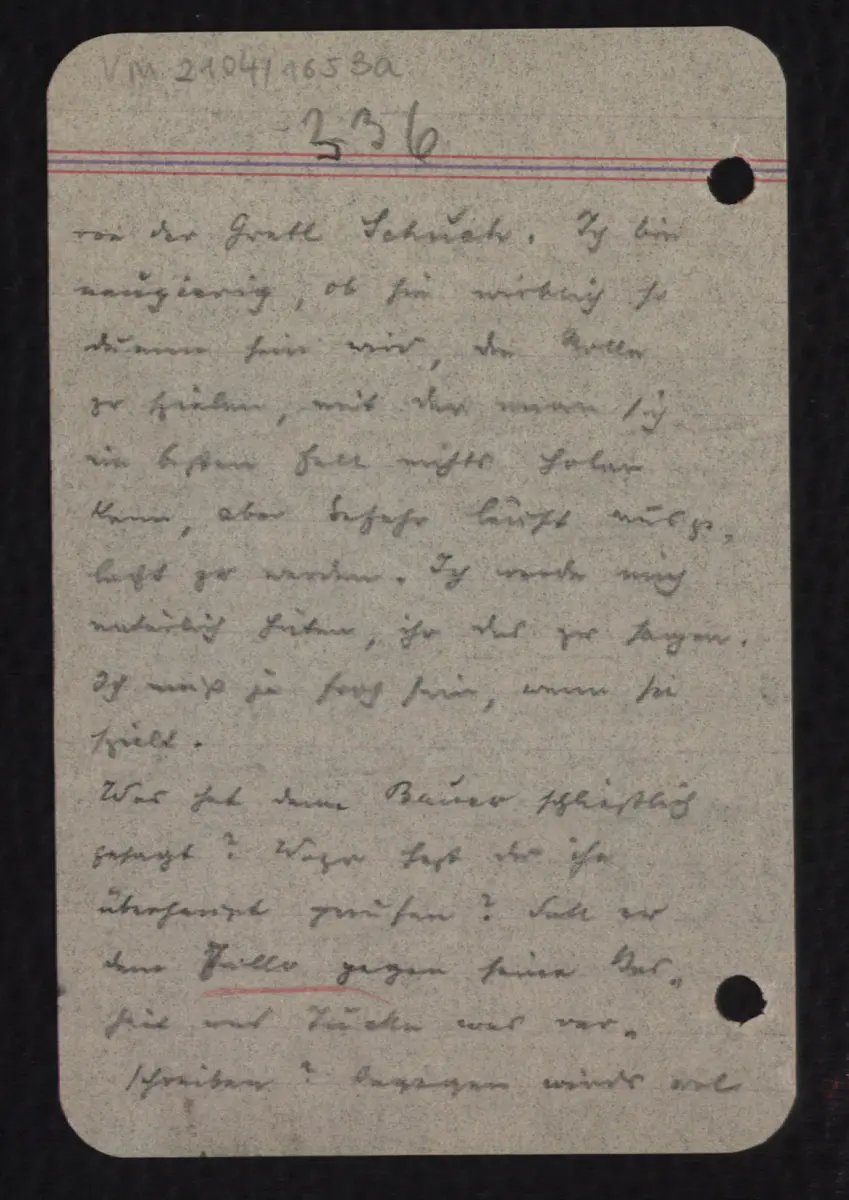 VM 2104/1653a
336
von der Gretl Schuch. Ich bin
neugierig, ob sie wirklich so
dumm sein wird, die Rolle
zu spielen, mit der man sich
im besten Fall nichts holen
kann, aber Gefahr läuft ausge-
lacht zu werden. Ich werde mich
natürlich hüten, ihr das zu sagen.
Ich muß ja froh sein, wenn sie
spielt.
Was hat denn Bauer schließlich
gesagt? Wozu hast du ihn
überhaupt gerufen? Soll er
dem Müller gegen seine Bos-
heit und Tücke was ver-
schreiben? Dagegen wirds wol